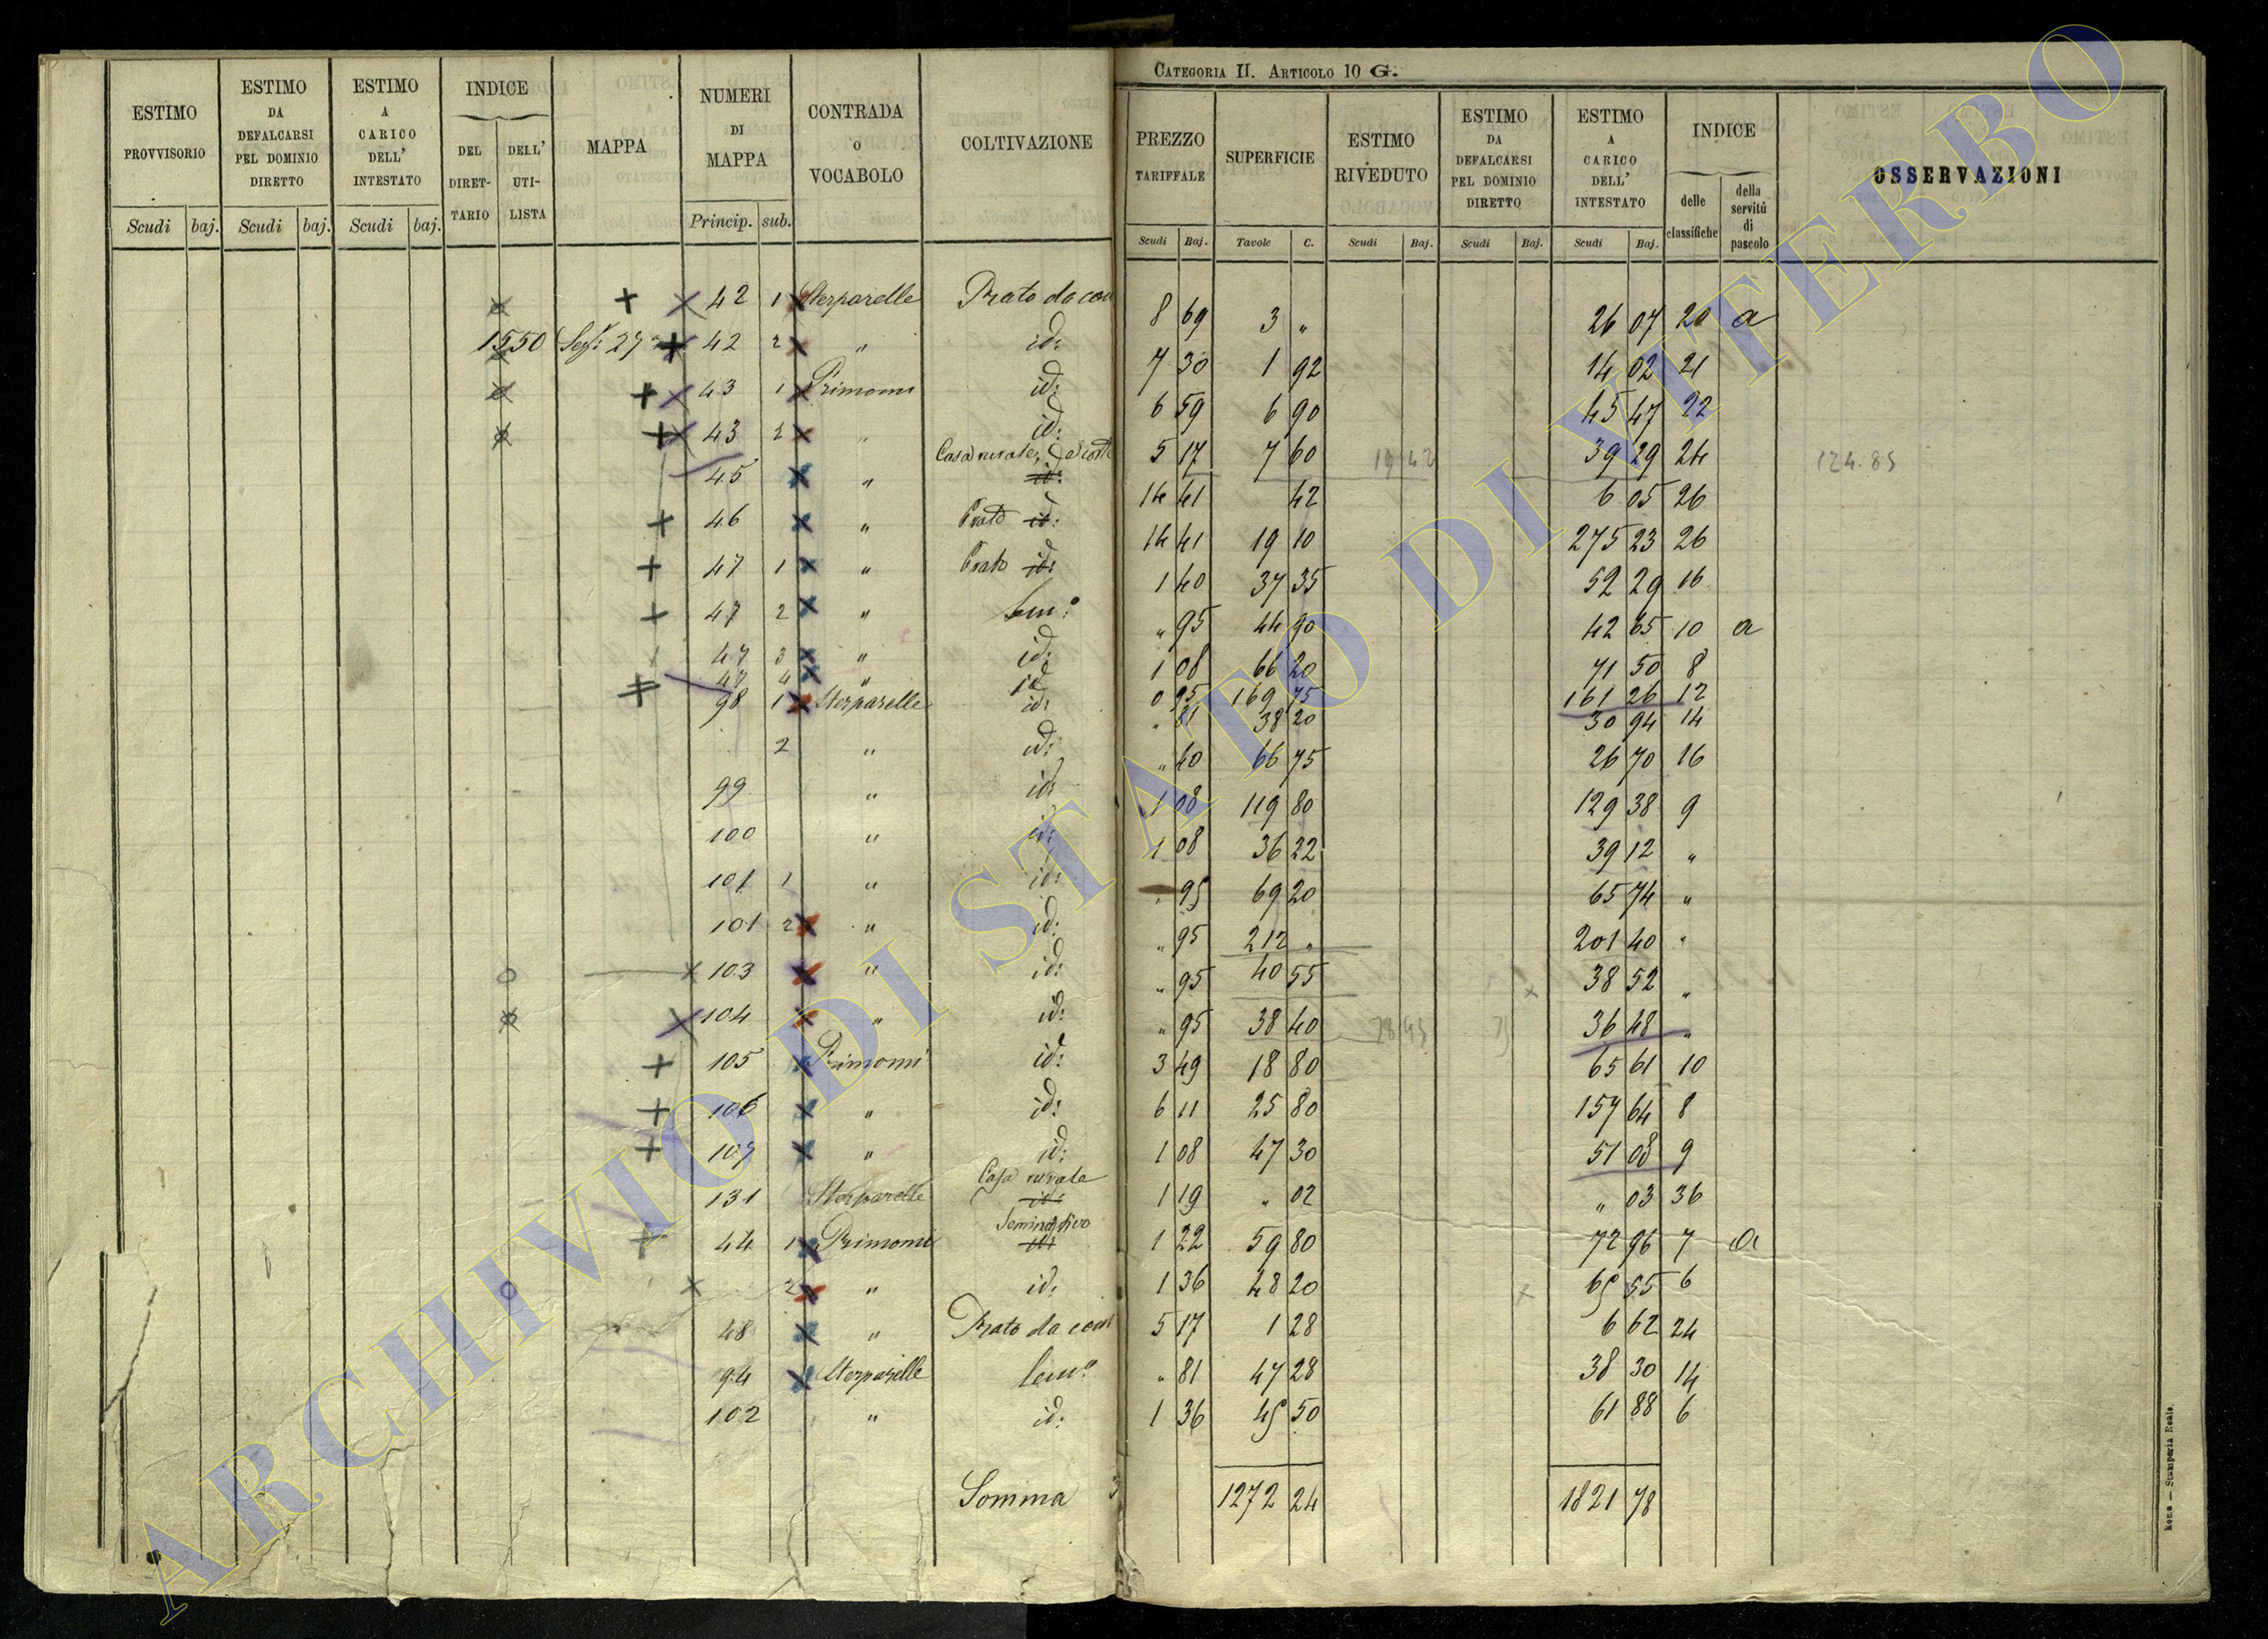 CATEGORIA II. ARTICOLO 10 G.
ESTIMO PROVVISORIO Scudi baj.
ESTIMO DA DEFALCARSI PEL DOMINIO DIRETTO Scudi baj.
ESTIMO A CARICO DELL' INTESTATO Scudi baj.
INDICE DEL DIRET- TARIO DELL' UTI- LISTA
MAPPA
NUMERI DI MAPPA Princip. sub.
CONTRADA o VOCABOLO
COLTIVAZIONE
PREZZO TARIFFALE Scudi Baj.
SUPERFICIE Tavole C.
ESTIMO RIVEDUTO Scudi Baj.
ESTIMO DA DEFALCARSI PEL DOMINIO DIRETTO Scudi Baj.
ESTIMO A CARICO DELL' INTESTATO Scudi Baj.
INDICE delle classifiche della servitù di pascolo
OSSERVAZIONI
42 1 Sterparelle Prato da 8 69 3 " 26 07 20 a
1550 27 42 2 " id: 7 30 1 92 14 02 21
43 1 Primomi id: 6 59 6 90 45 47 22
43 2 " id: 5 17 7 60 39 29 24 124.85
45 " Casa rurale id: 14 41 42 6 05 26
46 " Prato id: 14 41 19 10 275 23 26
47 1 " Prato id: 1 40 37 35 52 29 16
47 2 " Sem:o " 95 44 90 42 65 10 a
47 3 " id: 1 08 66 20 71 50 8
47 4 " id 0 95 169 75 161 26 12
98 1 Sterparelle id: " 81 38 20 30 94 14
2 " id: " 40 66 75 26 70 16
99 " id: 1 08 119 80 129 38 9
100 " id: 1 08 36 22 39 12 "
101 1 " id: " 95 69 20 65 74 "
101 2 " id: " 95 212 " 201 40 "
103 " id: " 95 40 55 38 52 "
104 " id: " 95 38 40 36 48 "
105 Primomi id: 3 49 18 80 65 61 10
106 " id: 6 11 25 80 157 64 8
107 " id: 1 08 47 30 51 08 9
131 Sterparelle Casa rurale id: 1 19 " 02 " 03 36
44 1 Primomi Seminativo id: 1 22 59 80 72 96 7 a
2 " id: 1 36 48 20 65 55 6
48 " Prato da 5 17 1 28 6 62 24
94 Sterparelle Sem:o " 81 47 28 38 30 14
102 " id: 1 36 45 50 61 88 6
Somma 1272 24 1821 78
Roma — Stamperia Reale.
ARCHIVIO DI STATO DI VITERBO